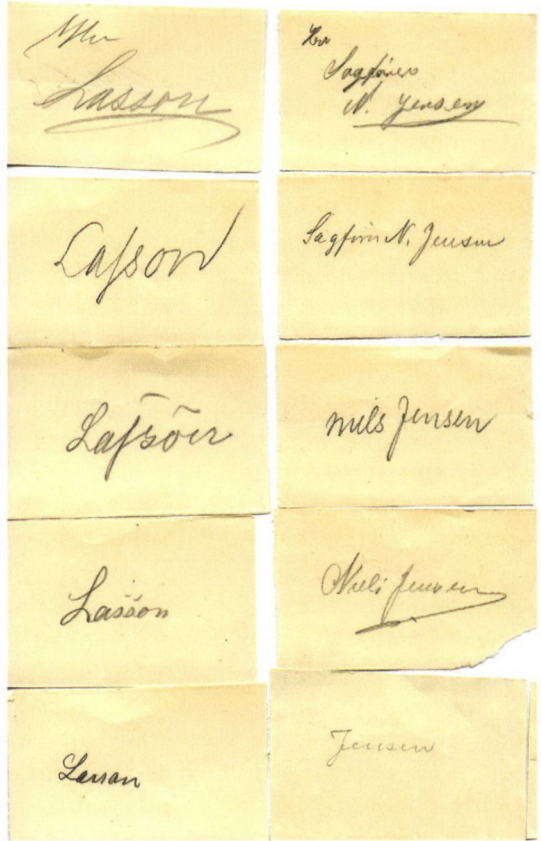 Hr
Lasson
Laſson
Laſsön
Lasson
Lasson
Hr
Sagfører
N. Jensen
Sagfører N. Jensen
Niels Jensen
Niels Jensen
Jensen